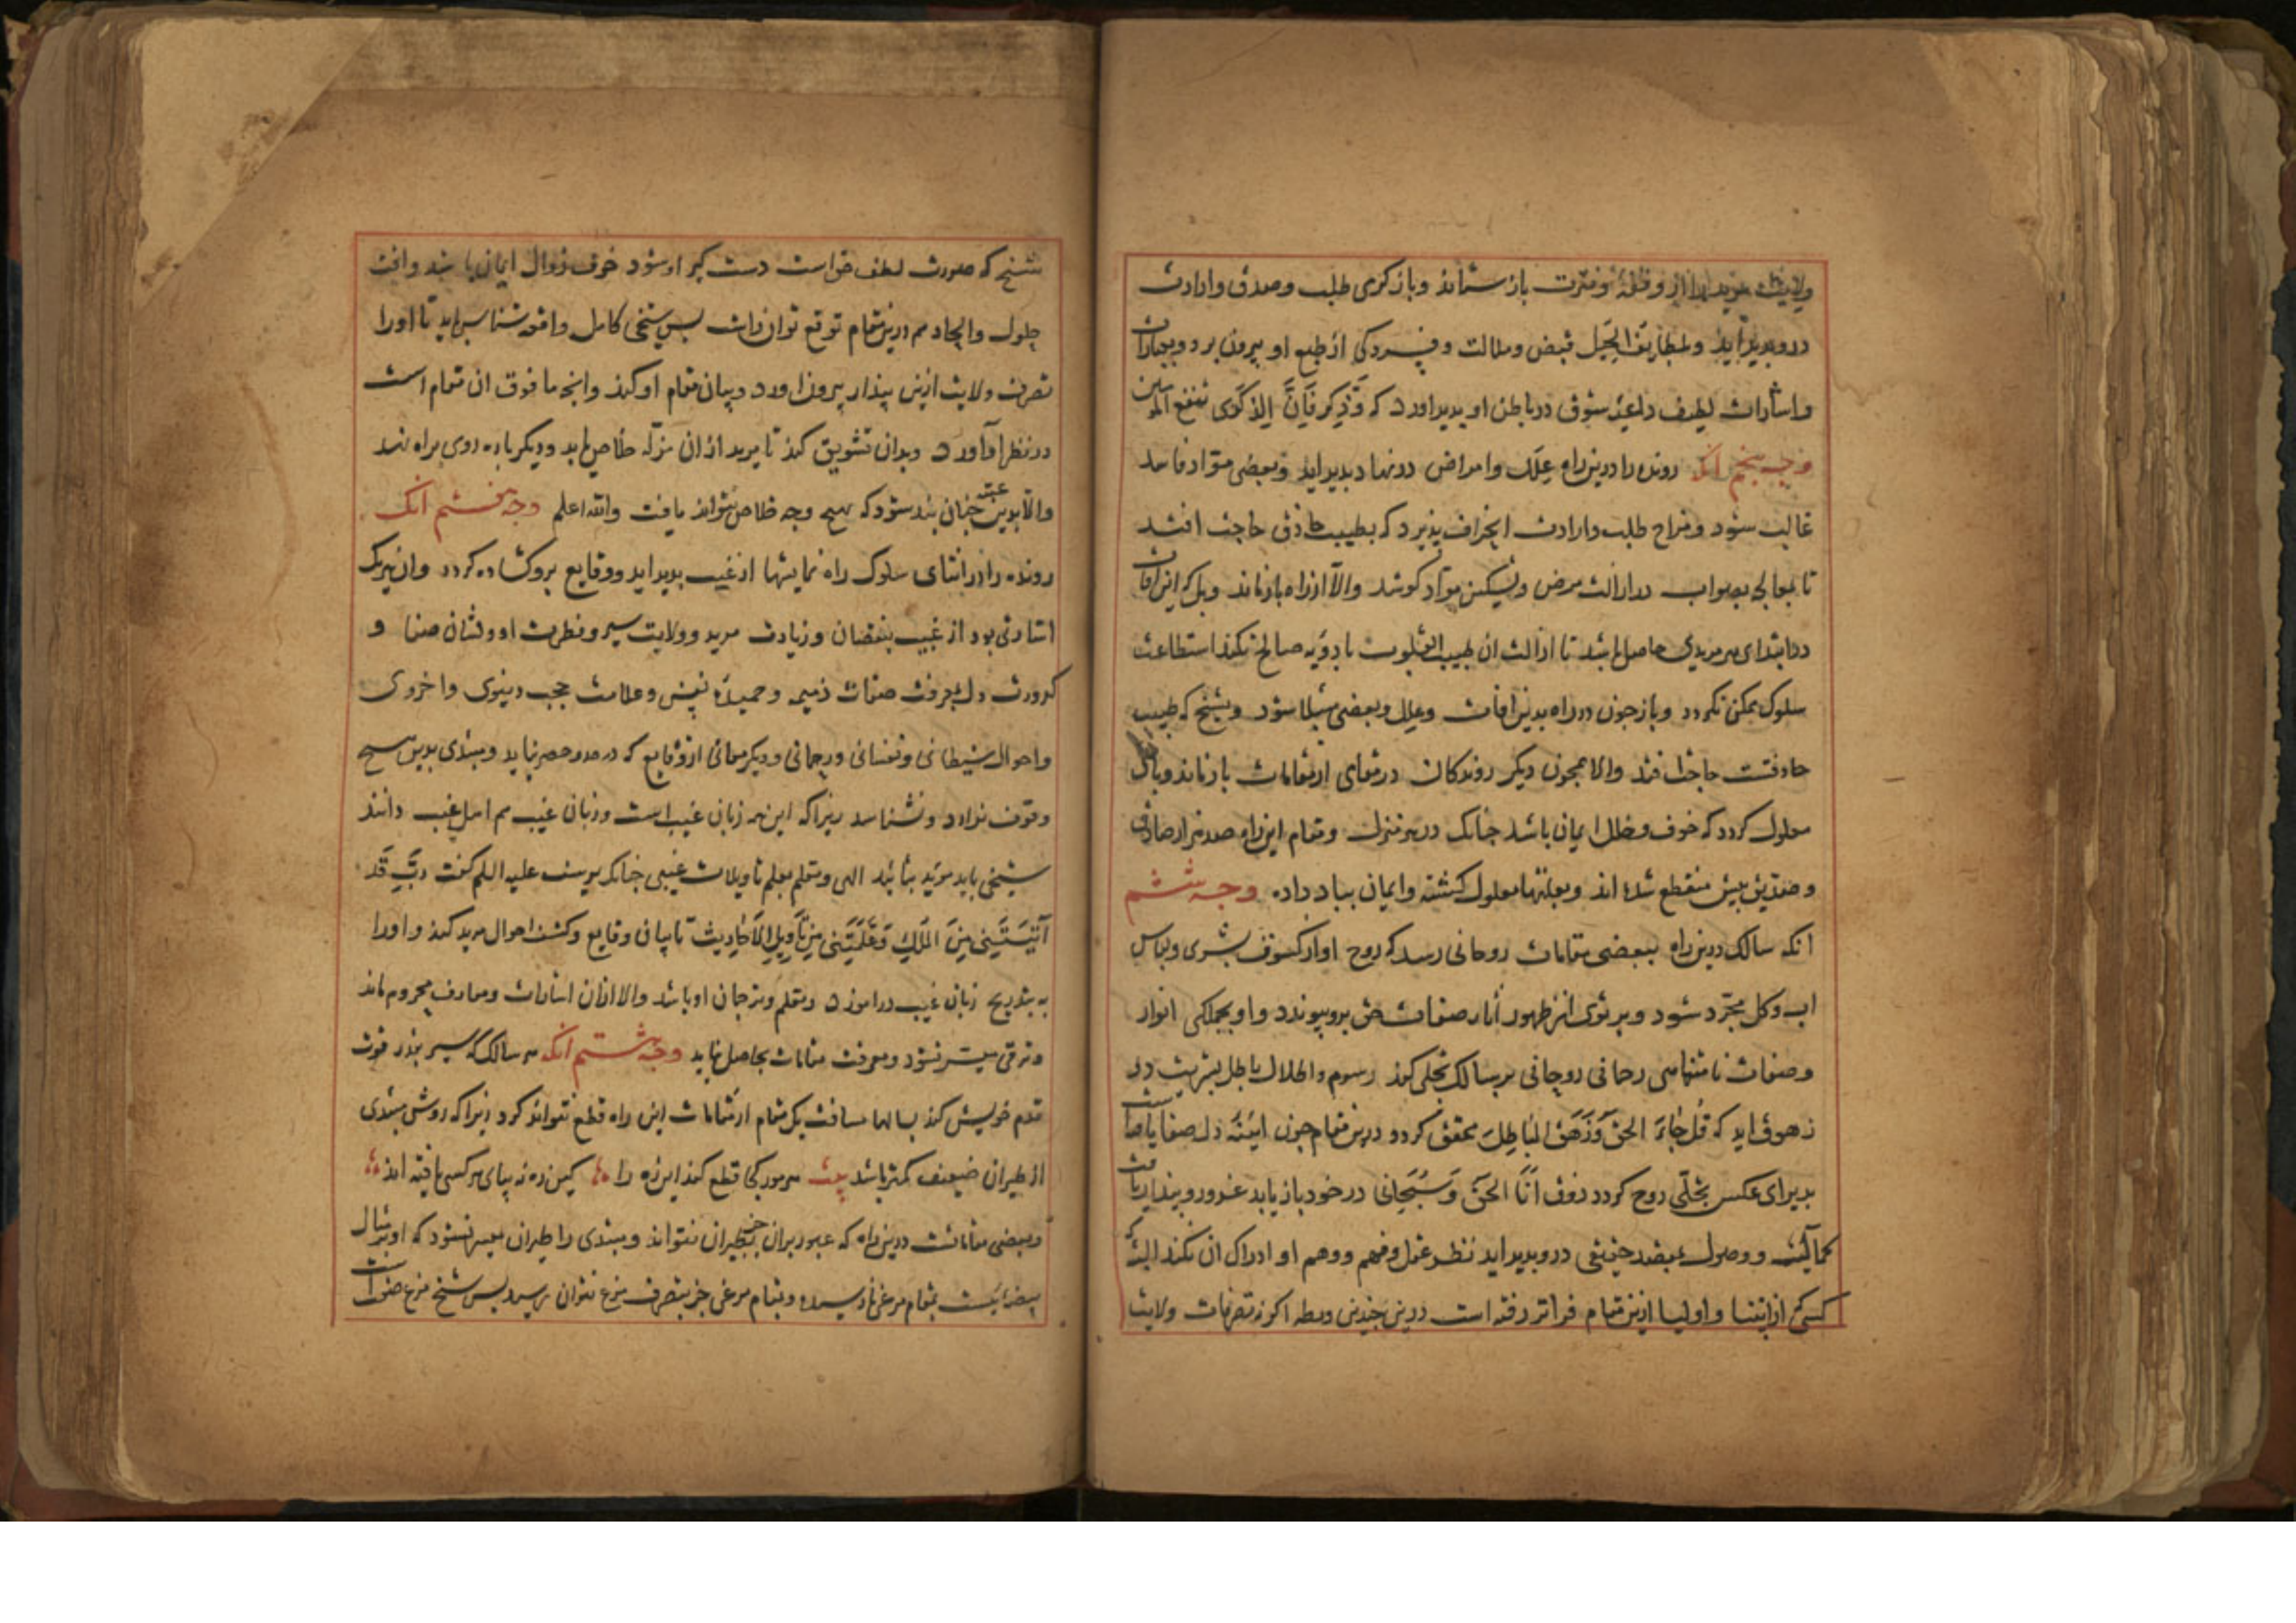 ولایت مرید را از وقفهٔ و فترت باز ستاند و باز کرمی طلب و صدق و ارادت
درو پدید آید و بلطایف الحیل قبض و ملالت و فسردکی از طبع او بیرون برد و بعبارات
و اشارات لطیف داعیهٔ شوق در باطن او پدید اورد که وَذَکِّر فَاِنَّ الذِکری تنفع المؤمنین
وجه پنجم آنکه رونده را درین راه عِلَل و امراض در نهاد پدید اید و بعضی موّاد فاسد
غالب شود و مزاج طلب و ارادت انحراف پذیرد که بطبیب حاذق حاجت افتد
تا بمعالجه بصواب در ازالت مرض و تسکین موّاد کوشد والّا از راه باز ماند و بل که این افات
در ابتدای هر مریدی حاصل باشد تا ازالت ان طبیب القلوب بادویَه صالحه نکند استطاعت
سلوک ممکن نکردد و باز چون در راه بدین افات و علل و بعضی مبتلا شود و بشیخ که طبیب
حاذقست حاجت افتد والا همچون دیکر روندکان در مقامی از مقامات باز ماند و بآن
معلول کردد که خوف و خلل ایمان باشد چنانک در هر منزل و مقام این راه صد هزار صادق
و صدّیق بیش منقطع شده اند و بعلتها معلول کشته و ایمان بباد داده وجه ششم
انکه سالک درین راه ببعضی مقامات روحانی رسد که روح او از کسوت بشری و لباس
اب و کل مجرّد شود و پرتوی از ظهور آثار صفات حق بدو پیوندد و او بجملکی انوار
و صفات نامتناهی رحمانی روحانی بر سالک تجلی کند رسوم و اطلال باطل بشریت در
زهوق اید که قُل جَاءَ الحق وَزَهَقَ البَاطِلَ محقق کردد و درین مقام چون ایٔنهٔ دل صفا یافته است
پذیرای عکس تجلّی روح کردد ذوق اَنَا الحَق وَ سُبحَانی در خود باز یابد غرور و پندار یافت
کمالیت و وصول بمقصد حقیقی درو پدید اید نظر عقل و فهم و وهم او ادراک ان نکند البته که
کسی از انبیا و اولیا ازین مقام فراتر رفته است درین چنین ورطه اکر نه تصرفات ولایت
شیخ که صورت لطف خداست دست کیر او شود خوف زوال ایمان باشد و افت
حلول و اتحاد هم درین مقام توقع توان داشت پس شیخی کامل واقعه شناس باید تا او را
تصرف ولایت ازین پندار بیرون اورد و بیان مقام او کند و انچه ما فوق ان مقام است
در نظر او آورد و بدان تشویق کند تا مرید از ان مزلّه خلاص یابد و دیکر باره روی براه نهد
والّا بدین عقبه چنان بند شود که بهیچ وجه خلاص نتواند یافت والله اعلم وجه هفتم آنک
رونده را در اثنای سلوک راه نمایشها از غیب پدید اید و وقایع برو کشاده کردد و ان هر یک
اشارتی بود از غیب بنقصان و زیادت مرید و ولایت سیر و فطرت او و نشان صفا و
کدورت دل و معرفت صفات ذمیمه و حمیدهٔ نفس و علامت حجب دنیوی و اخروی
و احوال شیطانی و نفسانی و رحمانی و دیکر معانی از وَقایع که در حد و حصر نیاید و مبتدی بدین هیچ
وقوف ندارد و نشناسد زیرا که این همه زبان غیب است و زبان غیب هم اهل غیب دانند
شیخی باید مؤید بتأیید الهی و متعلم بعلم تأویلات غیبی چنانکه یوسف علیه السلم کفت رَبِّ قَد
آتَیتَنِی مِنَ المُلکِ وَعَلَّمتَنِی مِن تَأوِیلِ الاَحَادِیث تا بیان وقایع و کشف احوال مرید کند و او را
به تدریج زبان غیب در اموزد و معلم و ترجمان او باشد والا از ان اشارات و معارف محروم ماند
و ترقی میسّر نشود و معرفت مقامات بحاصل نیاید وجه هشتم آنکه هر سالک که سیر بقدر قوت
قدم خویش کند بسالها مسافت یک مقام از مقامات این راه قطع نتواند کرد زیرا که روش مبتدی
از طیران ضعیف کمتر باشد بیت هر مور کجا قطع کند این ره را کین ره نه بپای هر کسی یافته اند
و بعضی مقاماتست درین راه که عبور بران جز بطیران نتواند و مبتدی را طیران میسر نشود که او بر مثال
بیضه ایست بمقام مرغی نارسیده و بمقام مرغی جز بتصرف مرغ نتوان رسید پس شیخ مرغ صفت است